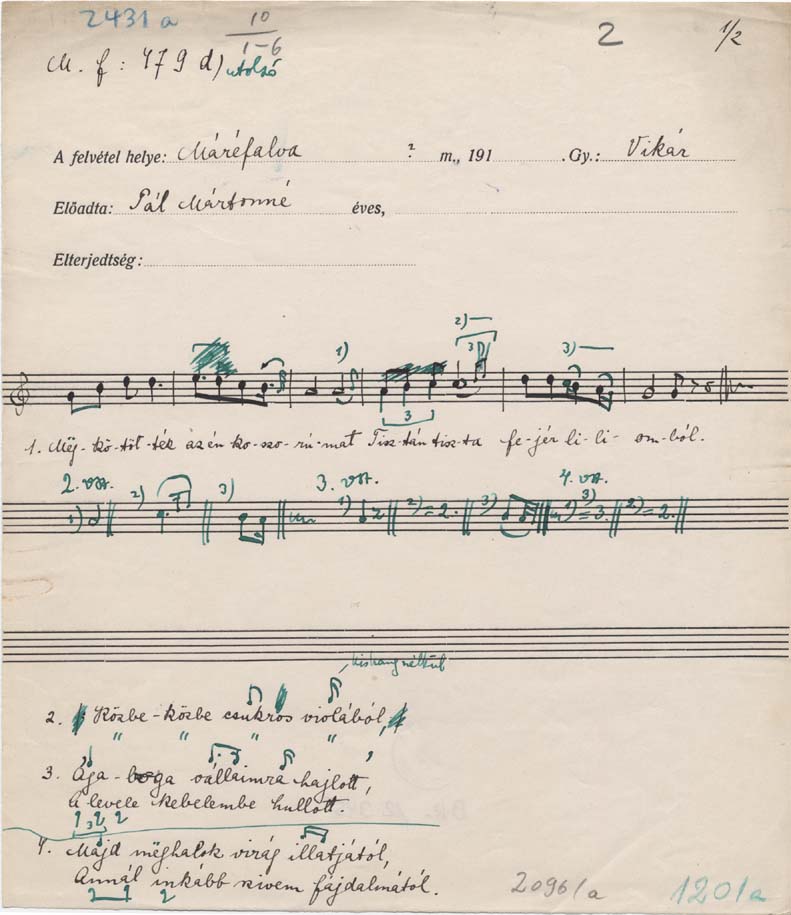 2431 a 10 2 1/2
1-6
M. f: 479 d) utolsó
A felvétel helye: Máréfalva ? m., 191 . Gy.: Vikár
Előadta: Pál Mártonné éves,
Elterjedtség:
1) 2) 3 3)
3
1. Még-kö-töt-ték az én ko-szo-rú-mat Tisz-tán tisz-ta fe-jér li-li-om-ból.
2. vsz. 3. vsz. 4. vsz.
1) 2) 3) 1) 2)=2. 3) 1)=3. 2)=2.
kishang nélkül
2. Közbe-közbe csukros violából,
" " " "
3. Ága-boga vállaimra hajlott,
A levele kebelembe hullott.
3
4. Majd méghalok virág illatjától,
Annál inkább szivem fájdalmától.
2096/a 1201a